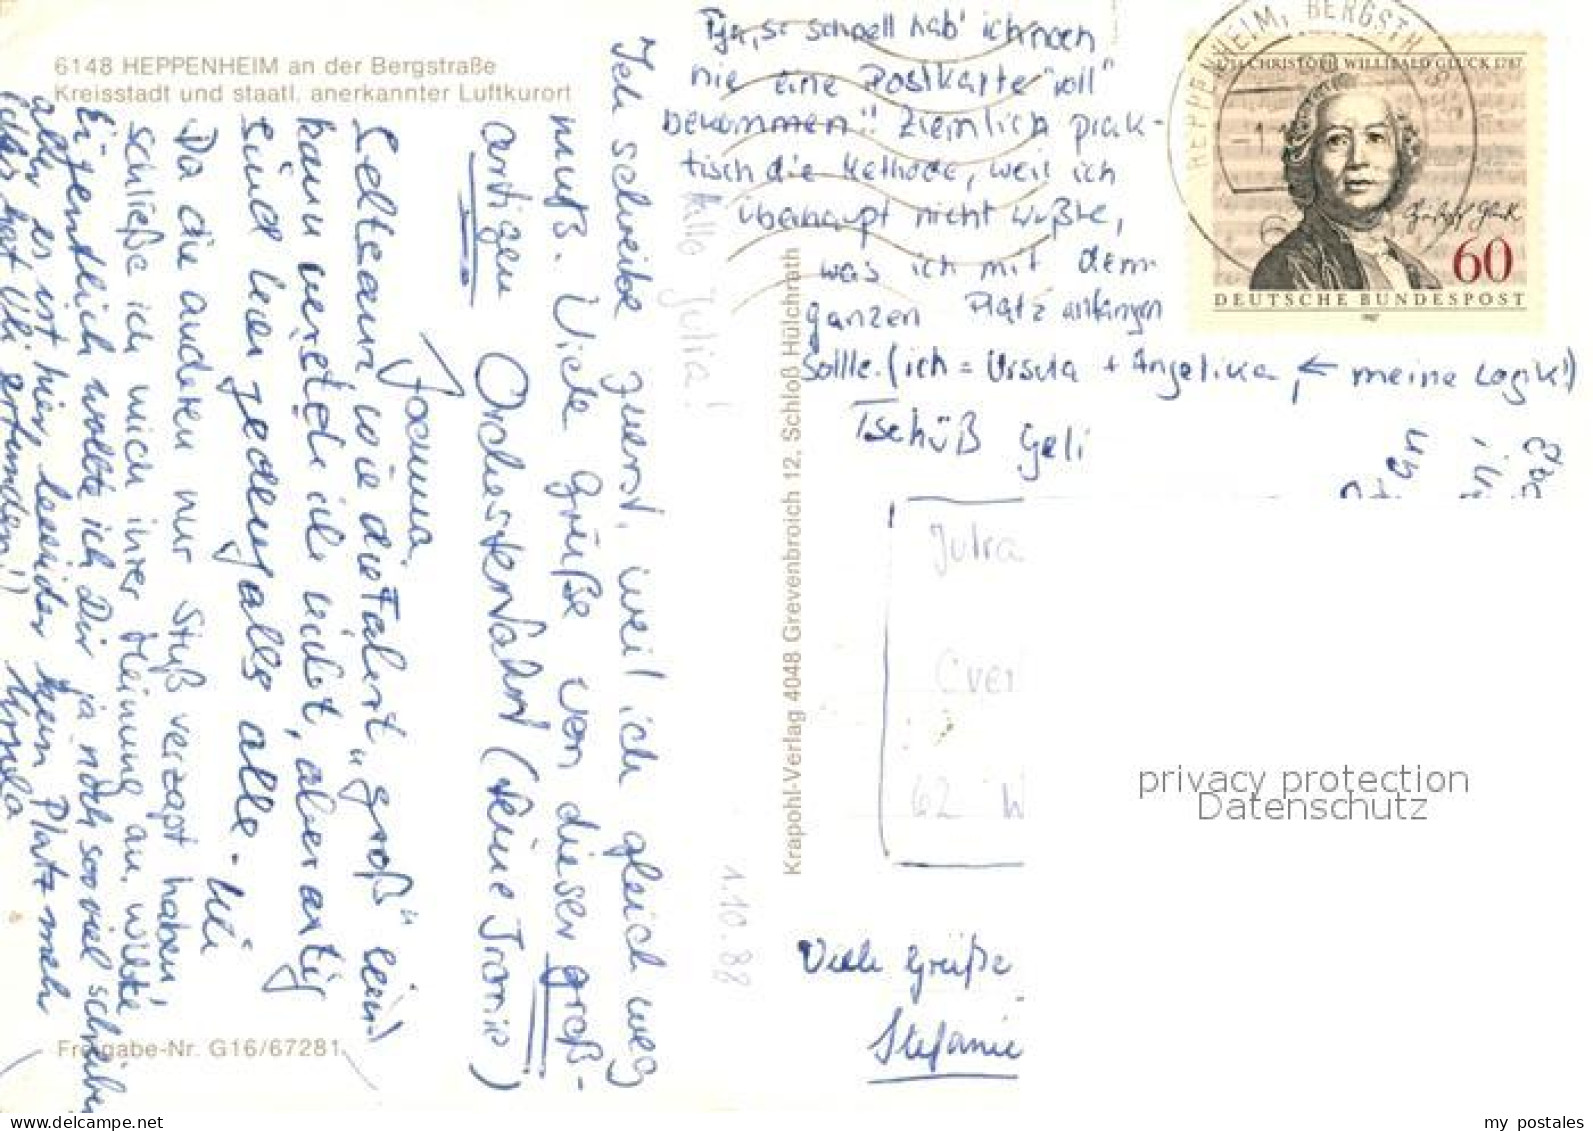 6148 HEPPENHEIM an der Bergstraße
Kreisstadt und staatl. anerkannter Luftkurort
Hallo Julia!
1.10.88
Ich schreibe zuerst, weil ich gleich weg
muß. Viele Grüße von dieser groß-
artigen Orchesterfahrt (keine Ironie)
Joanna.
Seltsam, wie die Fahrt "groß" sein
kann verstehe ich nicht, aber artig
sind hier jedenfalls alle. Uli
Da die anderen nur Stuß verzapft haben,
schließe ich mich ihrer Meinung an.
Eigentlich wollte ich Dir ja noch sooviel schreiben
aber es ist hier leeider kein Platz mehr
(das hat Uli erfunden!) Ursula
Tja, so schnell hab' ich noch
nie eine Postkarte "voll"
bekommen!! Ziemlich prak-
tisch die Methode, weil ich
überhaupt nicht wüßte,
was ich mit dem
ganzen Platz anfangen
sollte. (ich = Ursula + Angelika, ← meine Logik!)
Tschüß Geli
Viele Grüße
Stefanie
Krapohl-Verlag 4048 Grevenbroich 12, Schloß Hülchrath
Freigabe-Nr. G16/67281
HEPPENHEIM, BERGSTR
CHRISTOPH WILLIBALD GLUCK 1787
60
DEUTSCHE BUNDESPOST
1987
Julia
62 W
privacy protection
Datenschutz
my postales